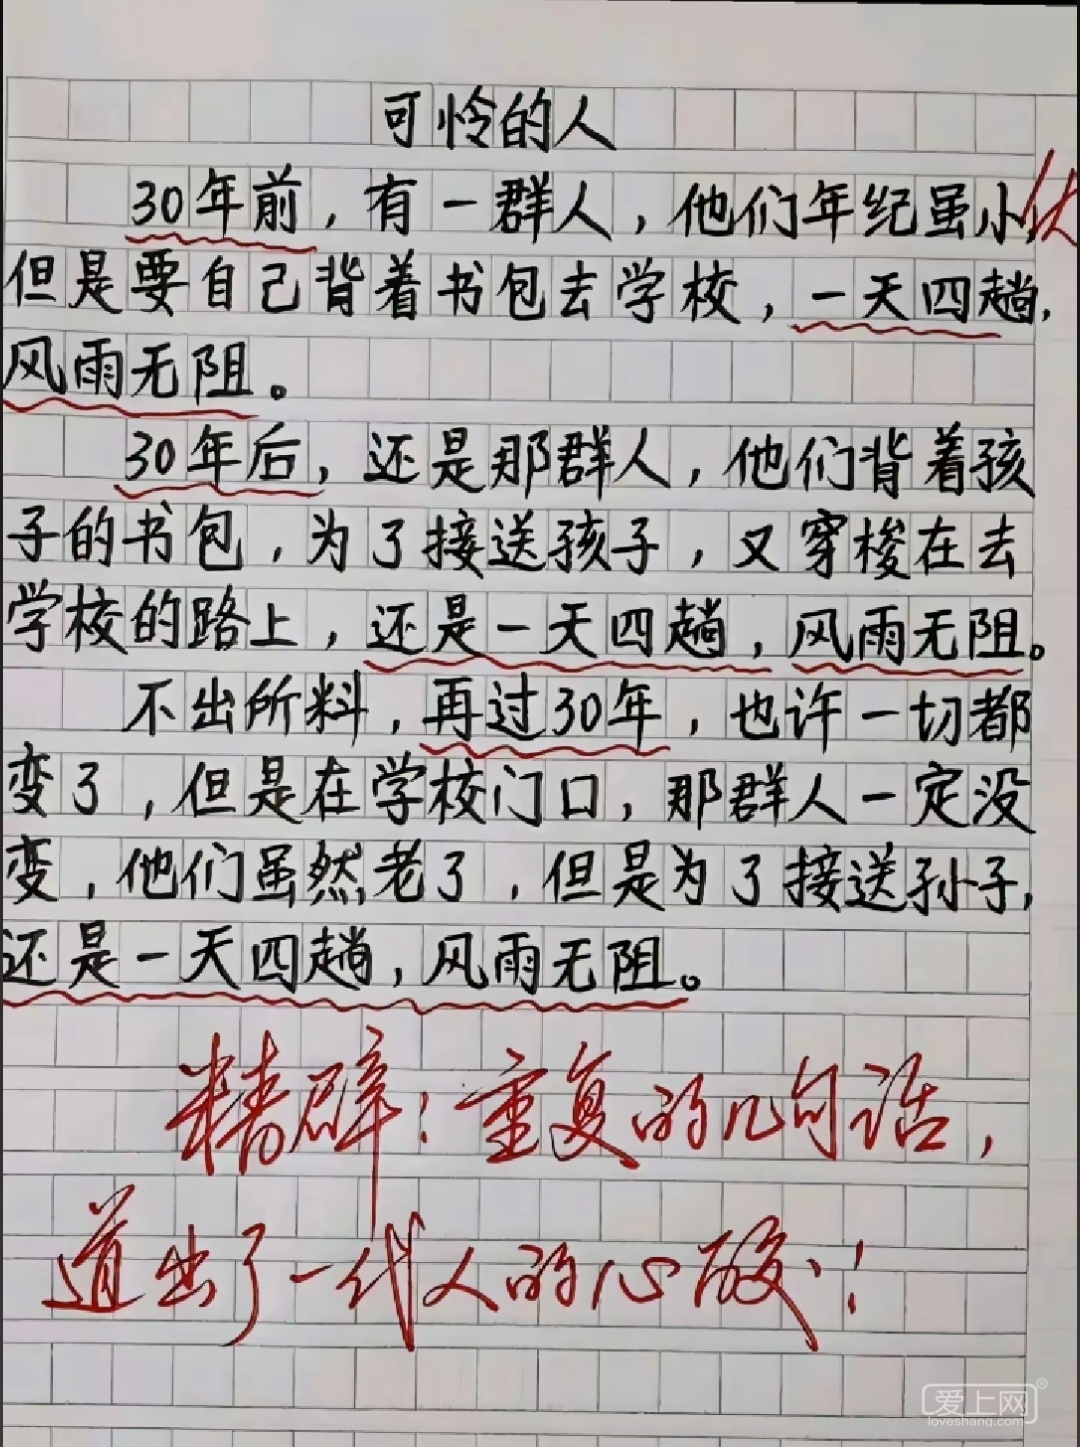 可怜的人
30年前，有一群人，他们年纪虽小，
但是要自己背着书包去学校，一天四趟，
风雨无阻。
30年后，还是那群人，他们背着孩
子的书包，为了接送孩子，又穿梭在去
学校的路上，还是一天四趟，风雨无阻。
不出所料，再过30年，也许一切都
变了，但是在学校门口，那群人一定没
变，他们虽然老了，但是为了接送孙子，
还是一天四趟，风雨无阻。
精辟！重复的几句话，
道出了一代人的心酸！
爱上网®
loveshang.com